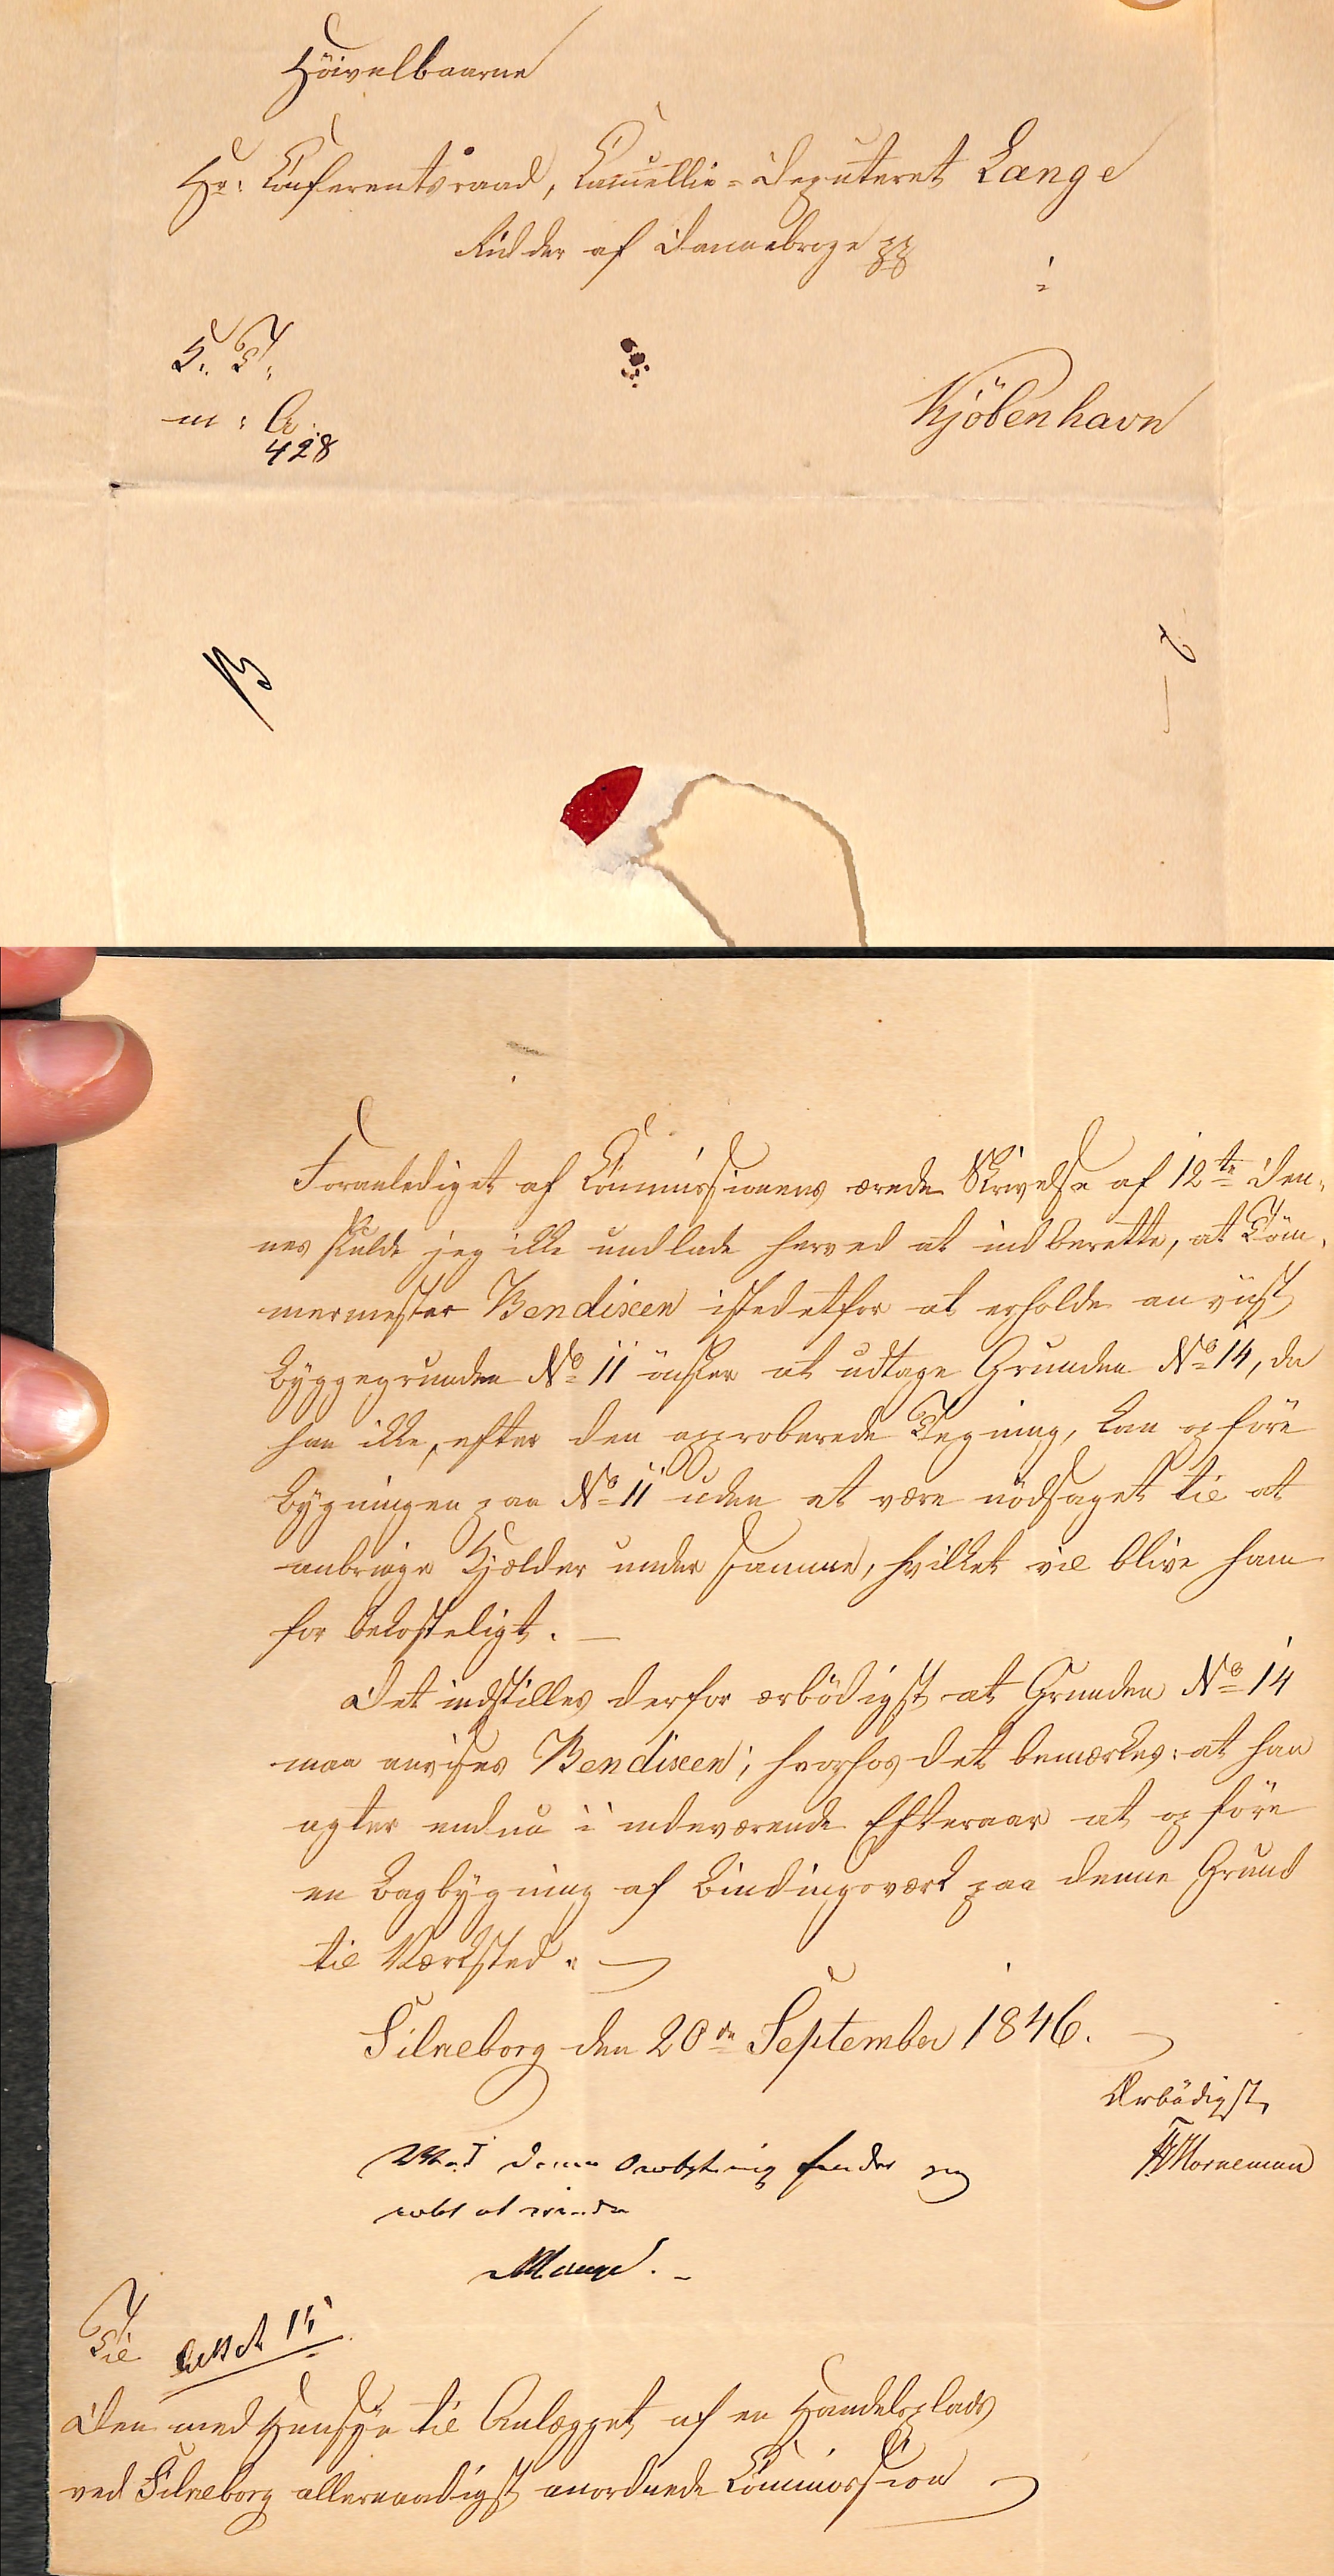 Höivelbaarne
Hr: Conferentsraad, Cancellie-Deputeret Lange
Ridder af Dannebroge
Kjöbenhavn
K. T.
m: A.
428
Foranlediget af Commissionens ærede Skrivelse af 12te den-
nes skulde jeg ikke undlade herved at indberette, at Töm-
mermester Bendixen istedetfor at erholde anviist
Byggegrunden No 11 önsker at udtage Grunden No 14, da
han ikke, efter den approberede Tegning, kan opföre
Bygningen paa No 11 uden at være nödsaget til at
anbringe Kjælder under samme, hvilket vil blive ham
for bekosteligt. —
Det indstilles derfor ærbödigst at Grunden No 14
maa anvises Bendixen; hvorhos det bemærkes: at han
agter endnu i indeværende Efteraar at opföre
en Bagbygning af Bindingsværk paa denne Grund
til Værksted. —
Silkeborg den 20de September 1846. —
Ærbödigst
Horneman
Mod denne finder jeg
at
Til
Den med Hensyn til Anlægget af en Handelsplads
ved Silkeborg allernaadigst anordnede Commission